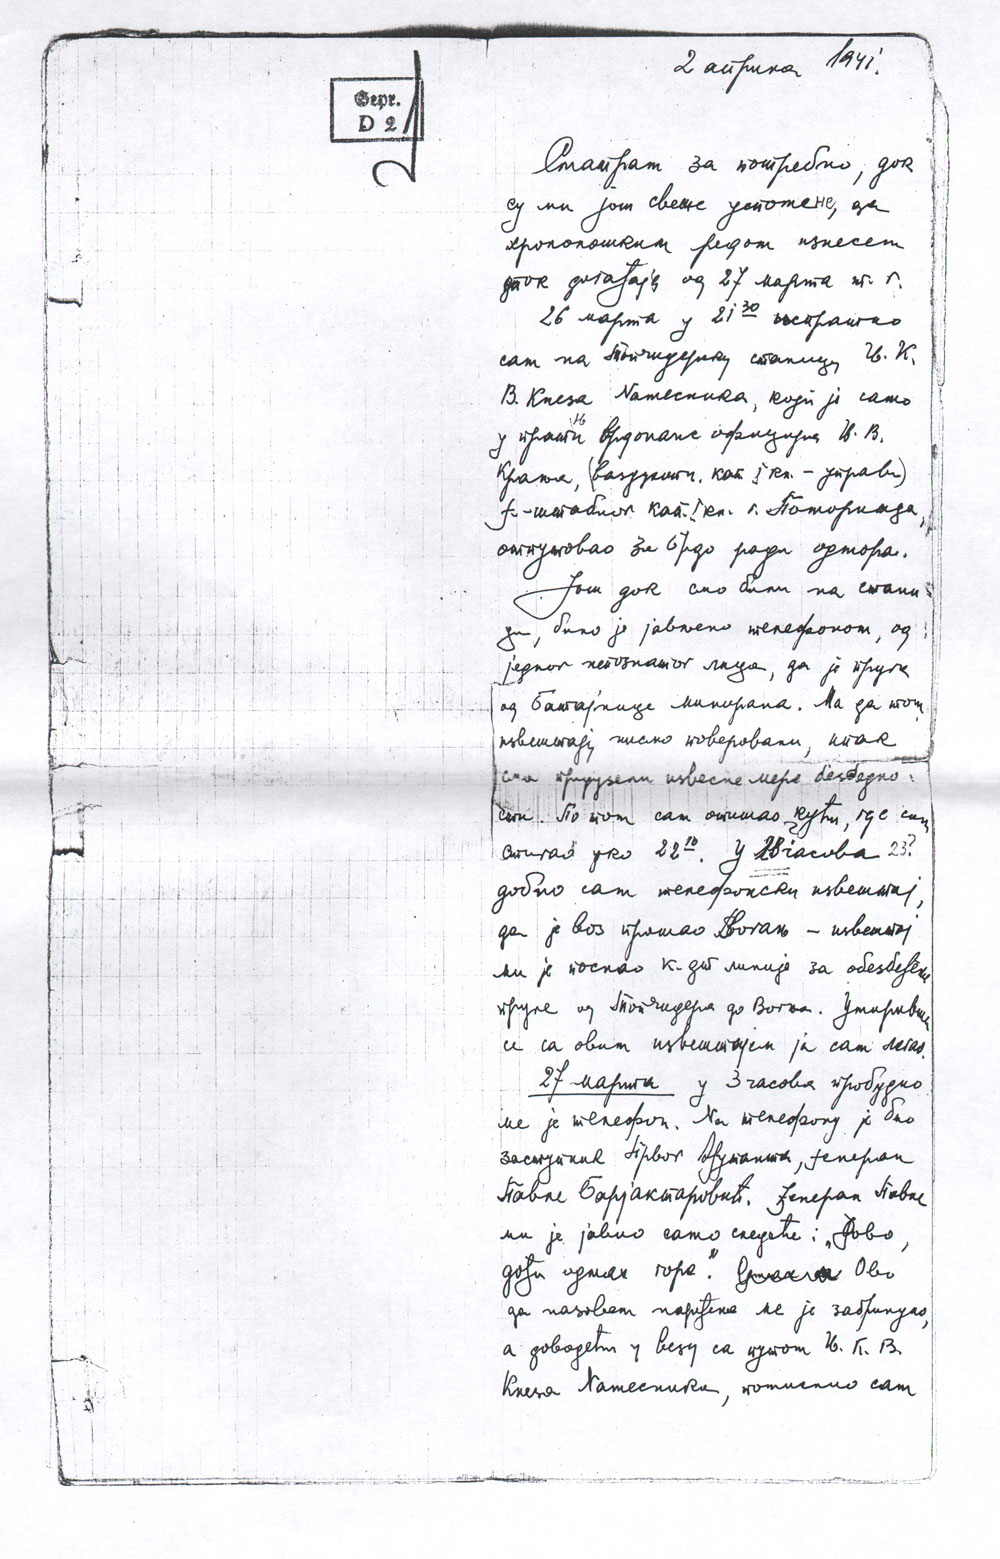 2 априла 1941.
Gepr.
D 2
Сматрам за потребно, док
су ми још свеже успомене, да
хронолошким редом изнесем
ток догађаја од 27 марта т. г.
26 марта у 21 30 испратио
сам на Топчидерску станицу Њ. К.
В. Кнеза Намесника, који је само
у пратњи ордонанс официра Њ. В.
Краља, (ваздухопл. кап. I кл. – управи)
ђ.-штабног кап. I кл. г.
отпутовао за Брдо ради одмора.
Још док смо били на стани-
ци, било је јављено телефоном, од
једног непознатог лица, да је пруга
од Батајнице минирана. Ма да том
извештају нисмо поверовали, ипак
смо предузели извесне мере безбедно-
сти. По том сам отишао кући, где сам
стигао око 22 10. У 23 часова 23?
добио сам телефонски извештај,
да је воз прошао Вогањ – извештај
ми је послао к-дт линије за обезбеђење
пруге од Топчидера до Вогња. Умиривши
се са овим извештајем ја сам легао.
27 марта у 3 часова пробудио
ме је телефон. На телефону је био
заступник Првог Ађутанта, ђенерал
Павле Барјактаровић. Ђенерал Павле
ми је јавио само следеће: „
дођи одмах горе." Ово
да назовем наређење ме је забринуло,
а доводећи у везу са путом Њ. К. В.
Кнеза Намесника, помислио сам